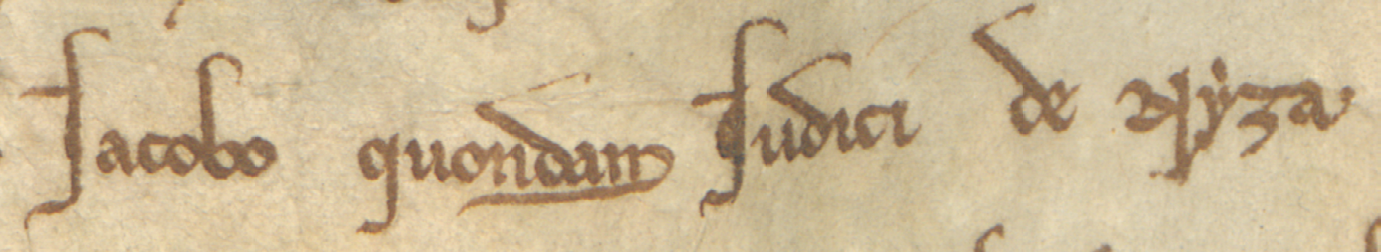 Iacobo quondam Iudici de Nyza